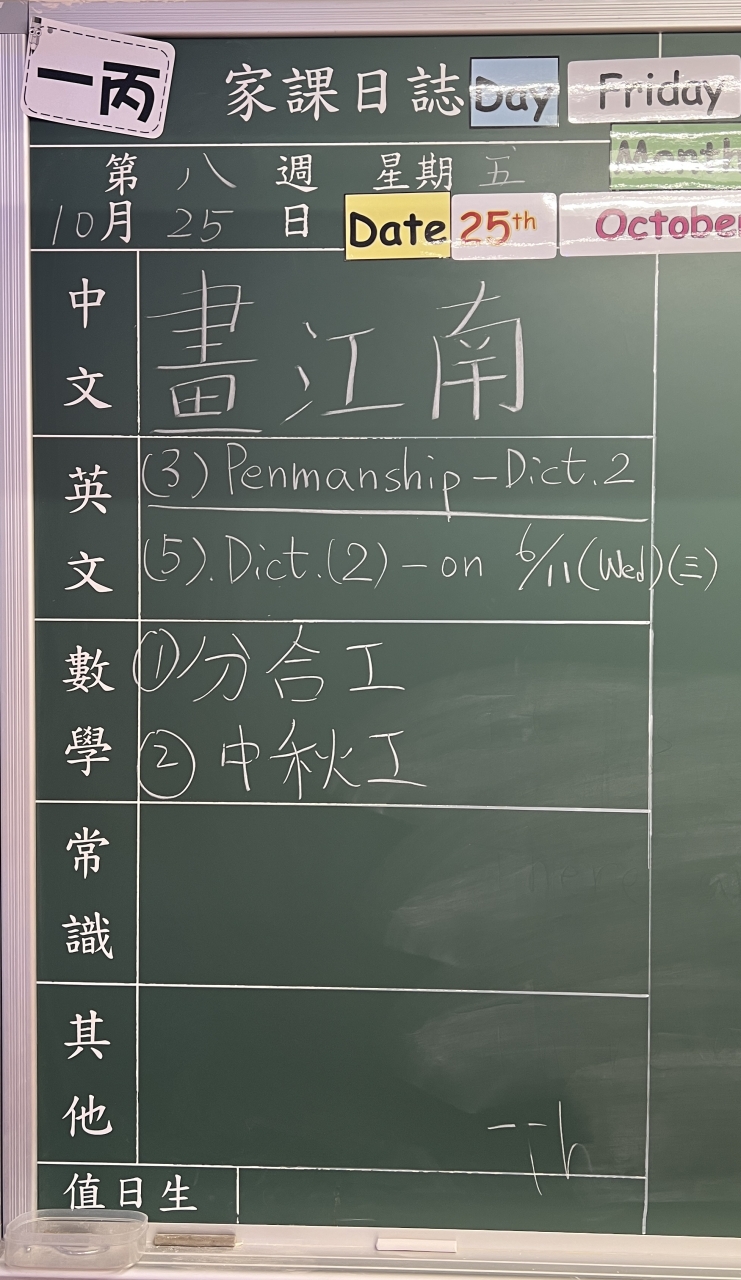 一丙
家課日誌 Day Friday
Month
第八週 星期五
10月25日 Date 25th October
中文 畫江南
英文 (3) Penmanship – Dict. 2
(5). Dict. (2) – on 6/11 (Wed) (三)
數學 ① 分合工
② 中秋工
常識
其他
值日生